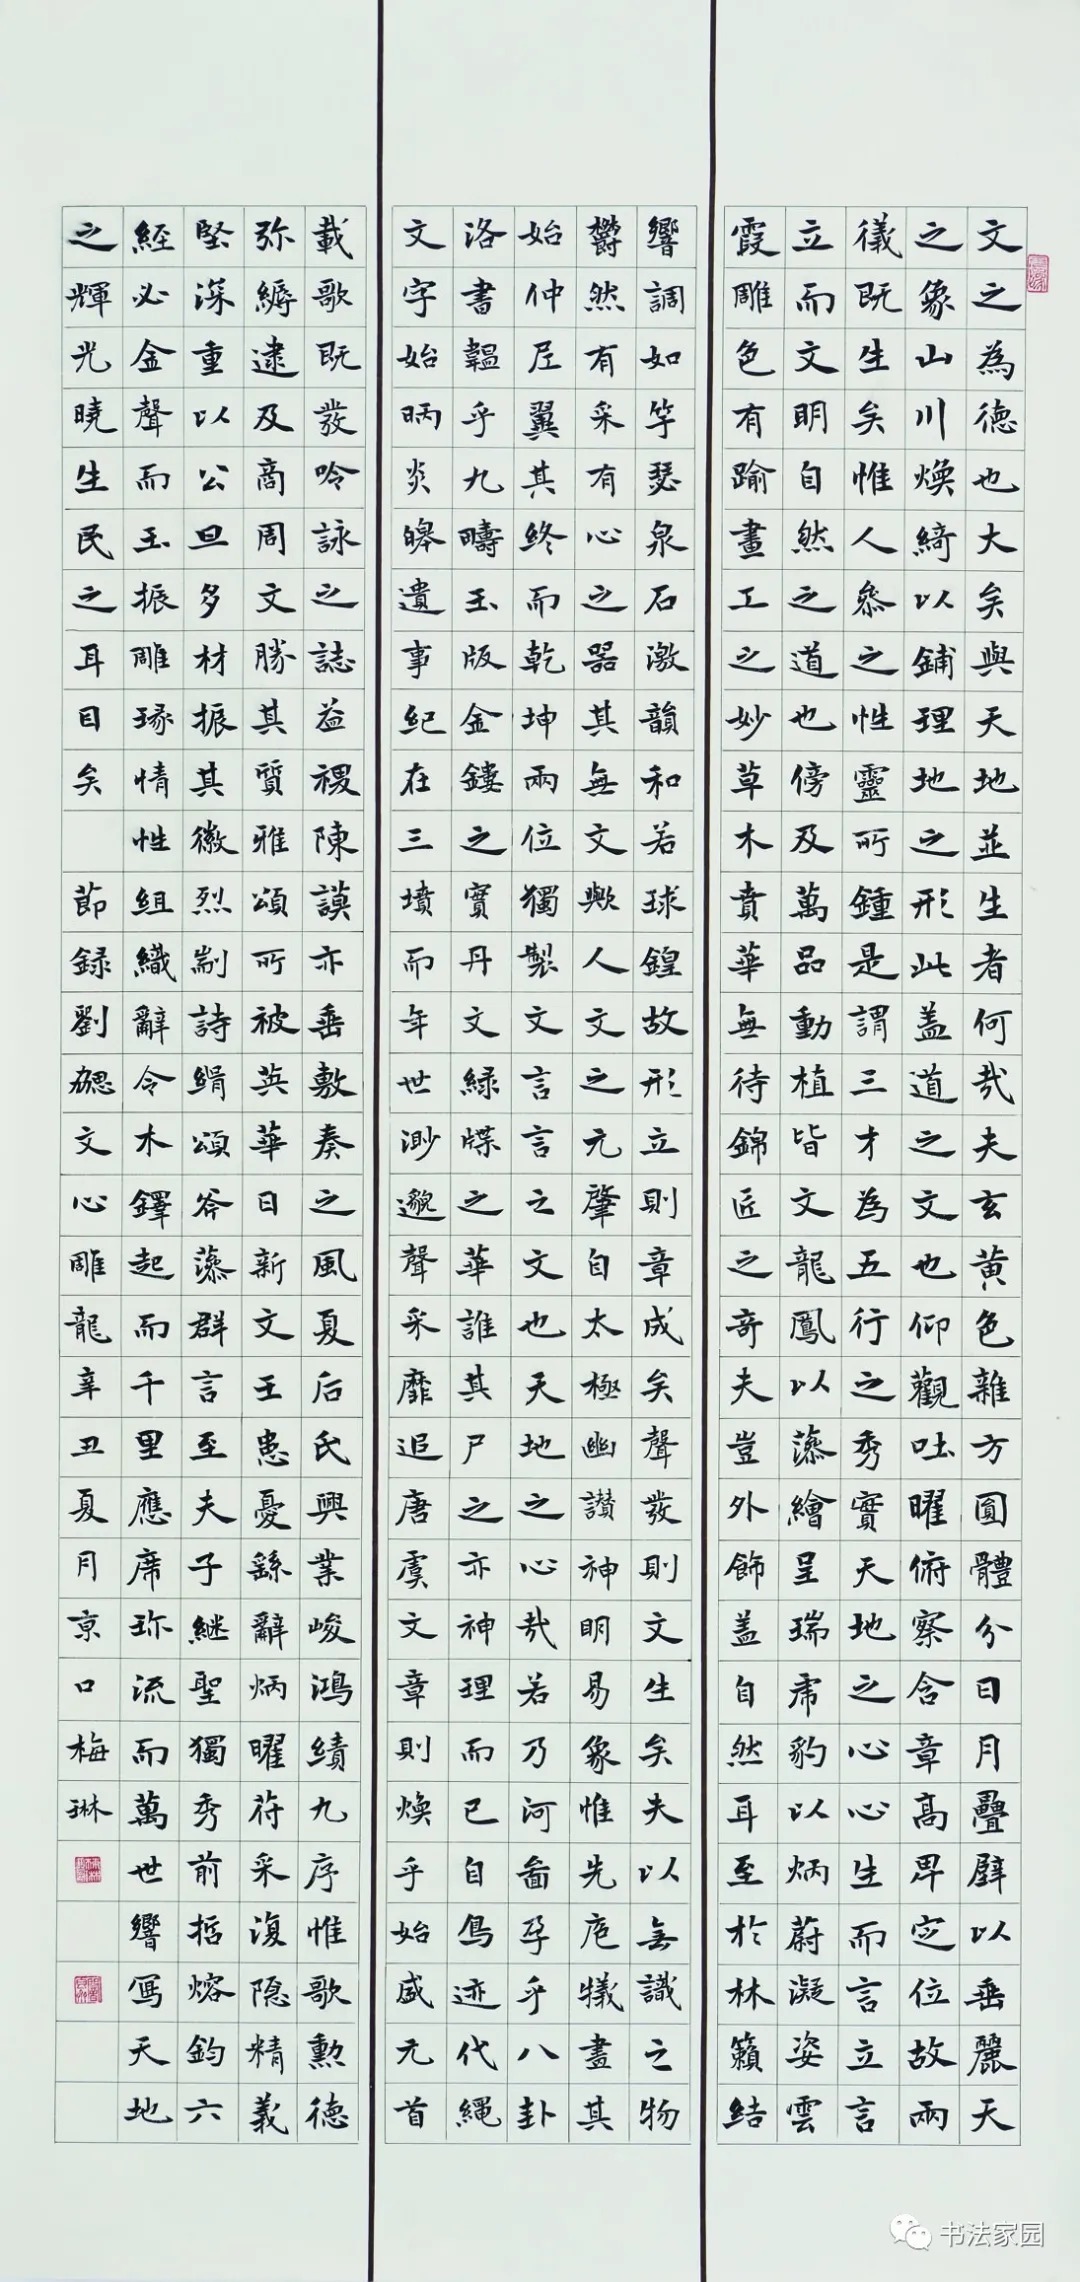 文之為德也大矣與天地並生者何哉夫玄黃色雜方圓體分日月疊璧以垂麗天
之象山川煥綺以鋪理地之形此盖道之文也仰觀吐曜俯察含章高卑定位故兩
儀既生矣惟人參之性靈所鍾是謂三才為五行之秀實天地之心心生而言立言
立而文明自然之道也傍及萬品動植皆文龍鳳以藻繪呈瑞虎豹以炳蔚凝姿雲
霞雕色有踰畫工之妙草木賁華無待錦匠之奇夫豈外飾盖自然耳至於林籟結
響調如竽瑟泉石激韻和若球鍠故形立則章成矣聲發則文生矣夫以無識之物
鬱然有采有心之器其無文歟人文之元肇自太極幽讃神明易象惟先庖犧畫其
始仲尼翼其終而乾坤兩位獨製文言言之文也天地之心哉若乃河圖孕乎八卦
洛書韞乎九疇玉版金鏤之實丹文緑牒之華誰其尸之亦神理而已自鳥迹代繩
文字始昞炎皞遺事紀在三墳而年世渺邈聲采靡追唐虞文章則煥乎始盛元首
載歌既發吟詠之誌益稷陳謨亦垂敷奏之風夏后氏興業峻鴻績九序惟歌勲德
弥縟逮及商周文勝其質雅頌所被英華日新文王患憂繇辭炳曜符采復隐精義
堅深重以公旦多材振其徽烈剬詩緝頌斧藻群言至夫子継聖獨秀前哲熔鈞六
經必金聲而玉振雕琢情性組織辭令木鐸起而千里應席珎流而萬世響寫天地
之輝光曉生民之耳目矣 節録劉勰文心雕龍辛丑夏月京口梅琳
书法家园